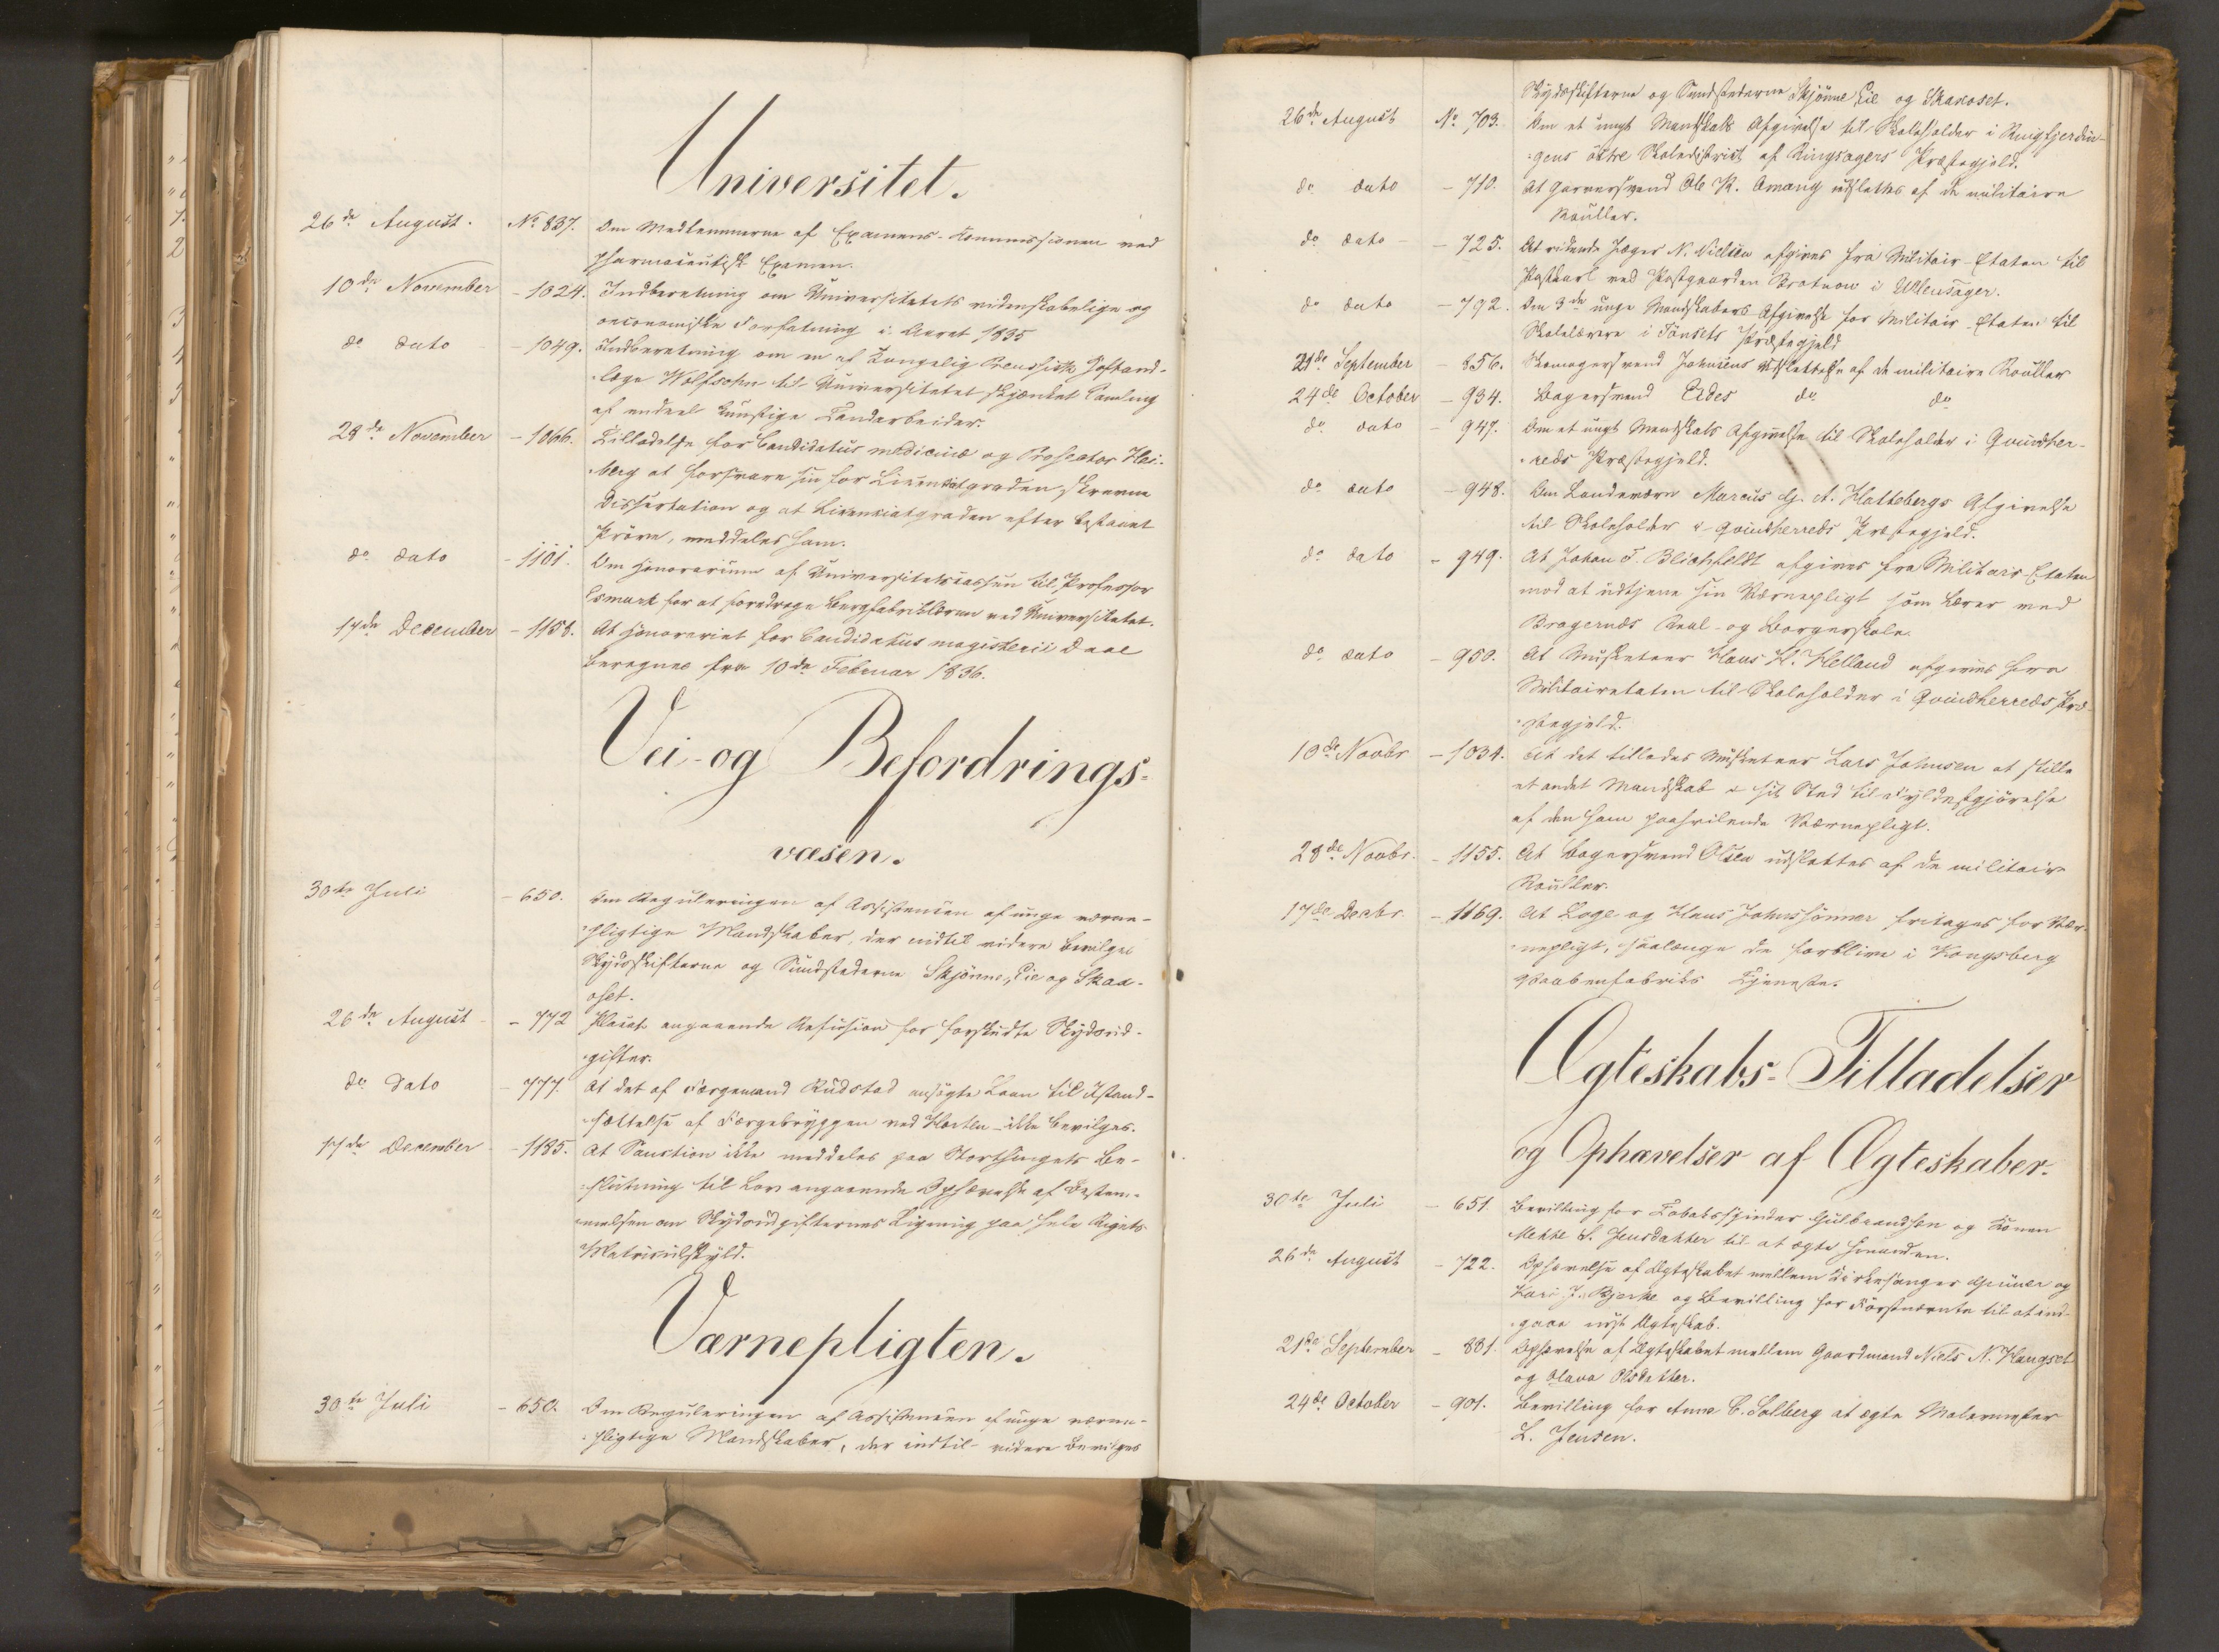 Universitet.
26de August. No 837. Om Medlemmerne af Examens-Kommissionen ved
pharmaceutisk Examen.
10de November - 1024. Indberetning om Universitetets videnskabelige og
oeconomiske Forfatning i Aaret 1835
do dato - 1049. Indberetning om en af Kongelig Preussisk Hoftand-
læge Wolfsohn til Universitetet skjænket Samling
af endeel kunstige Tandarbeider.
28de November - 1066. Tilladelse for Candidatus medicinæ og Prosector Hei-
berg at forsvare sin for Licentiatgraden skrevne
Dissertation og at Licentiatgraden efter bestaaet
Prøve, meddeles ham.
do dato - 1101. Om Honorarium af Universitetskassen til Professor
Esmark for at foredrage Bergfabriklæren ved Universitetet.
17de December - 1158. At Honorariet for Candidatus magisterii Daae
beregnes fra 10de Februar 1836.
Vei- og Befordrings-
væsen.
30te Juli - 650. Om Reguleringen af Assistencen af unge værne-
pligtige Mandskaber, der indtil videre bevilges
Skydsskifterne og Sundstederne Skjønne, Eie og Skaa-
oset.
26de August - 772 Placat angaaende Refusion for forskudte Skydsud-
gifter.
do dato - 777. At det af Færgemand Rudstad ansøgte Laan til Istand-
sættelse af Færgebryggen ved Horten ikke bevilges.
17de December - 1185. At Sanction ikke meddeles paa Storthingets Be-
slutning til Lov angaaende Ophævelse af Bestem-
melsen om Skydsudgifternes Ligning paa hele Rigets
Matriculskyld.
Værnepligten.
30te Juli - 650. Om Reguleringen af Assistencen af unge værne-
pligtige Mandskaber, der indtil videre bevilges
Skydsskifterne og Sundstederne Skjønne Eie og Skaaoset.
26de August No 703. Om et ungt Mandskabs Afgivelse til Skoleholder i Ringfjerdin-
gens østre Skoledistrict af Ringsagers Præstegjeld.
do dato - 710. At Garversvend Ole K. Amang udslettes af de militaire
Rouller.
do dato - 725. At ridende Jæger N. Nielsen afgives fra Militair-Etaten til
Postkarl ved Postgaarden Brotnow i Ullensager.
do dato - 792. Om 3de unge Mandskabers Afgivelse for Militair-Etaten til
Skolelærere i Tønsets Præstegjeld
21de September - 856. Skomagersvend Johnsens Udslettelse af de militaire Rouller
24de October - 934. Bagersvend Eides do do
do dato - 947. Om et ungt Mandskabs Afgivelse til Skoleholder i Qvindher-
reds Præstegjeld.
do dato - 948. Om Landeværn Marcus G. A. Hattebergs Afgivelse
til Skoleholder i Qvindherreds Præstegjeld.
do dato - 949. At Johan F. Blichfeldt afgives fra Militair Etaten
mod at udtjene sin Værnepligt som Lærer ved
Bragernæs Real- og Borgerskole.
do dato - 950. At Musketeer Hans H. Helland afgives fra
Militairetaten til Skoleholder i Qvindherreds Præ-
stegjeld.
10de Novbr - 1034. At det tillades Musketeer Lars Johnsen at stille
et andet Mandskab i sit Sted til Fyldestgjørelse
af den ham paahvilende Værnepligt.
28de Novbr. - 1155. At Bagersvend Olsen udslettes af de militaire
Rouller.
17de Decbr. - 1169. At Loge og Hans Johnssønner fritages for Vær-
nepligt, saalænge de forblive i Kongsberg
Vaabenfabriks Tjeneste.
Ægteskabs-Tilladelser
og Ophævelser af Ægteskaber.
30te Juli - 651. Bevilling for Tobaksspinder Gulbrandsen og Konen
Mekke S. Jensdatter til at ægte hinanden.
26de August - 722. Ophævelse af Ægteskabet mellem Kirkesanger Gruner og
Kari J. Bjerke og Bevilling for Førstnævnte til at ind-
gaae nyt Ægteskab.
21de September - 881. Ophævelse af Ægteskabet mellem Gaardmand Niels N. Haugset
og Olava Olsdatter.
24de October - 901. Bevilling for Anna C. Solberg at ægte Malermester
L. Jensen.